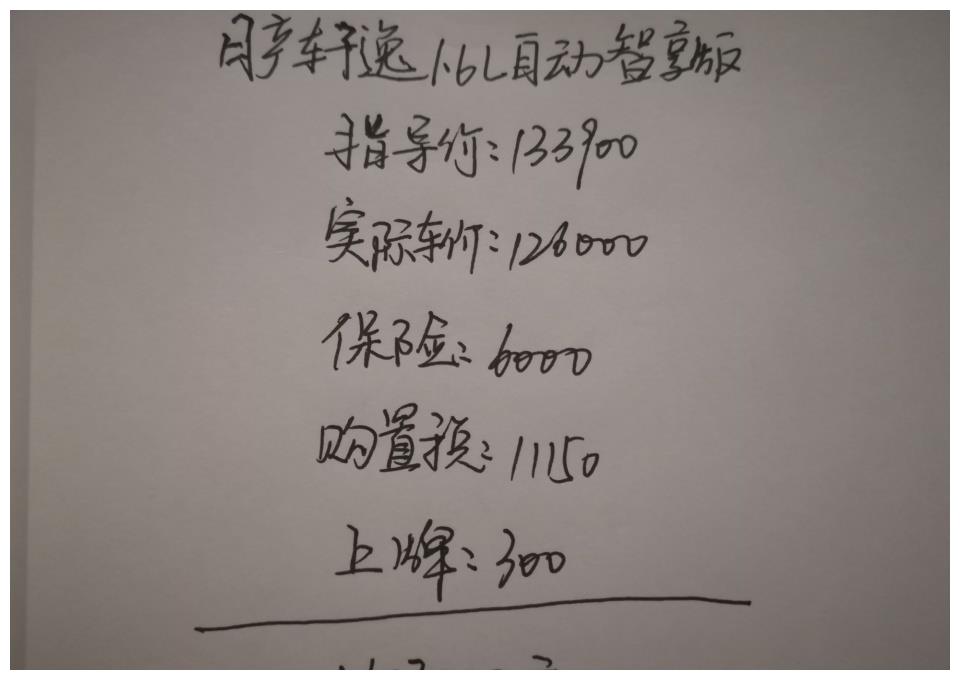 日产轩逸1.6L自动智享版
指导价:133900
实际车价:126000
保险:6000
购置税:11150
上牌:300